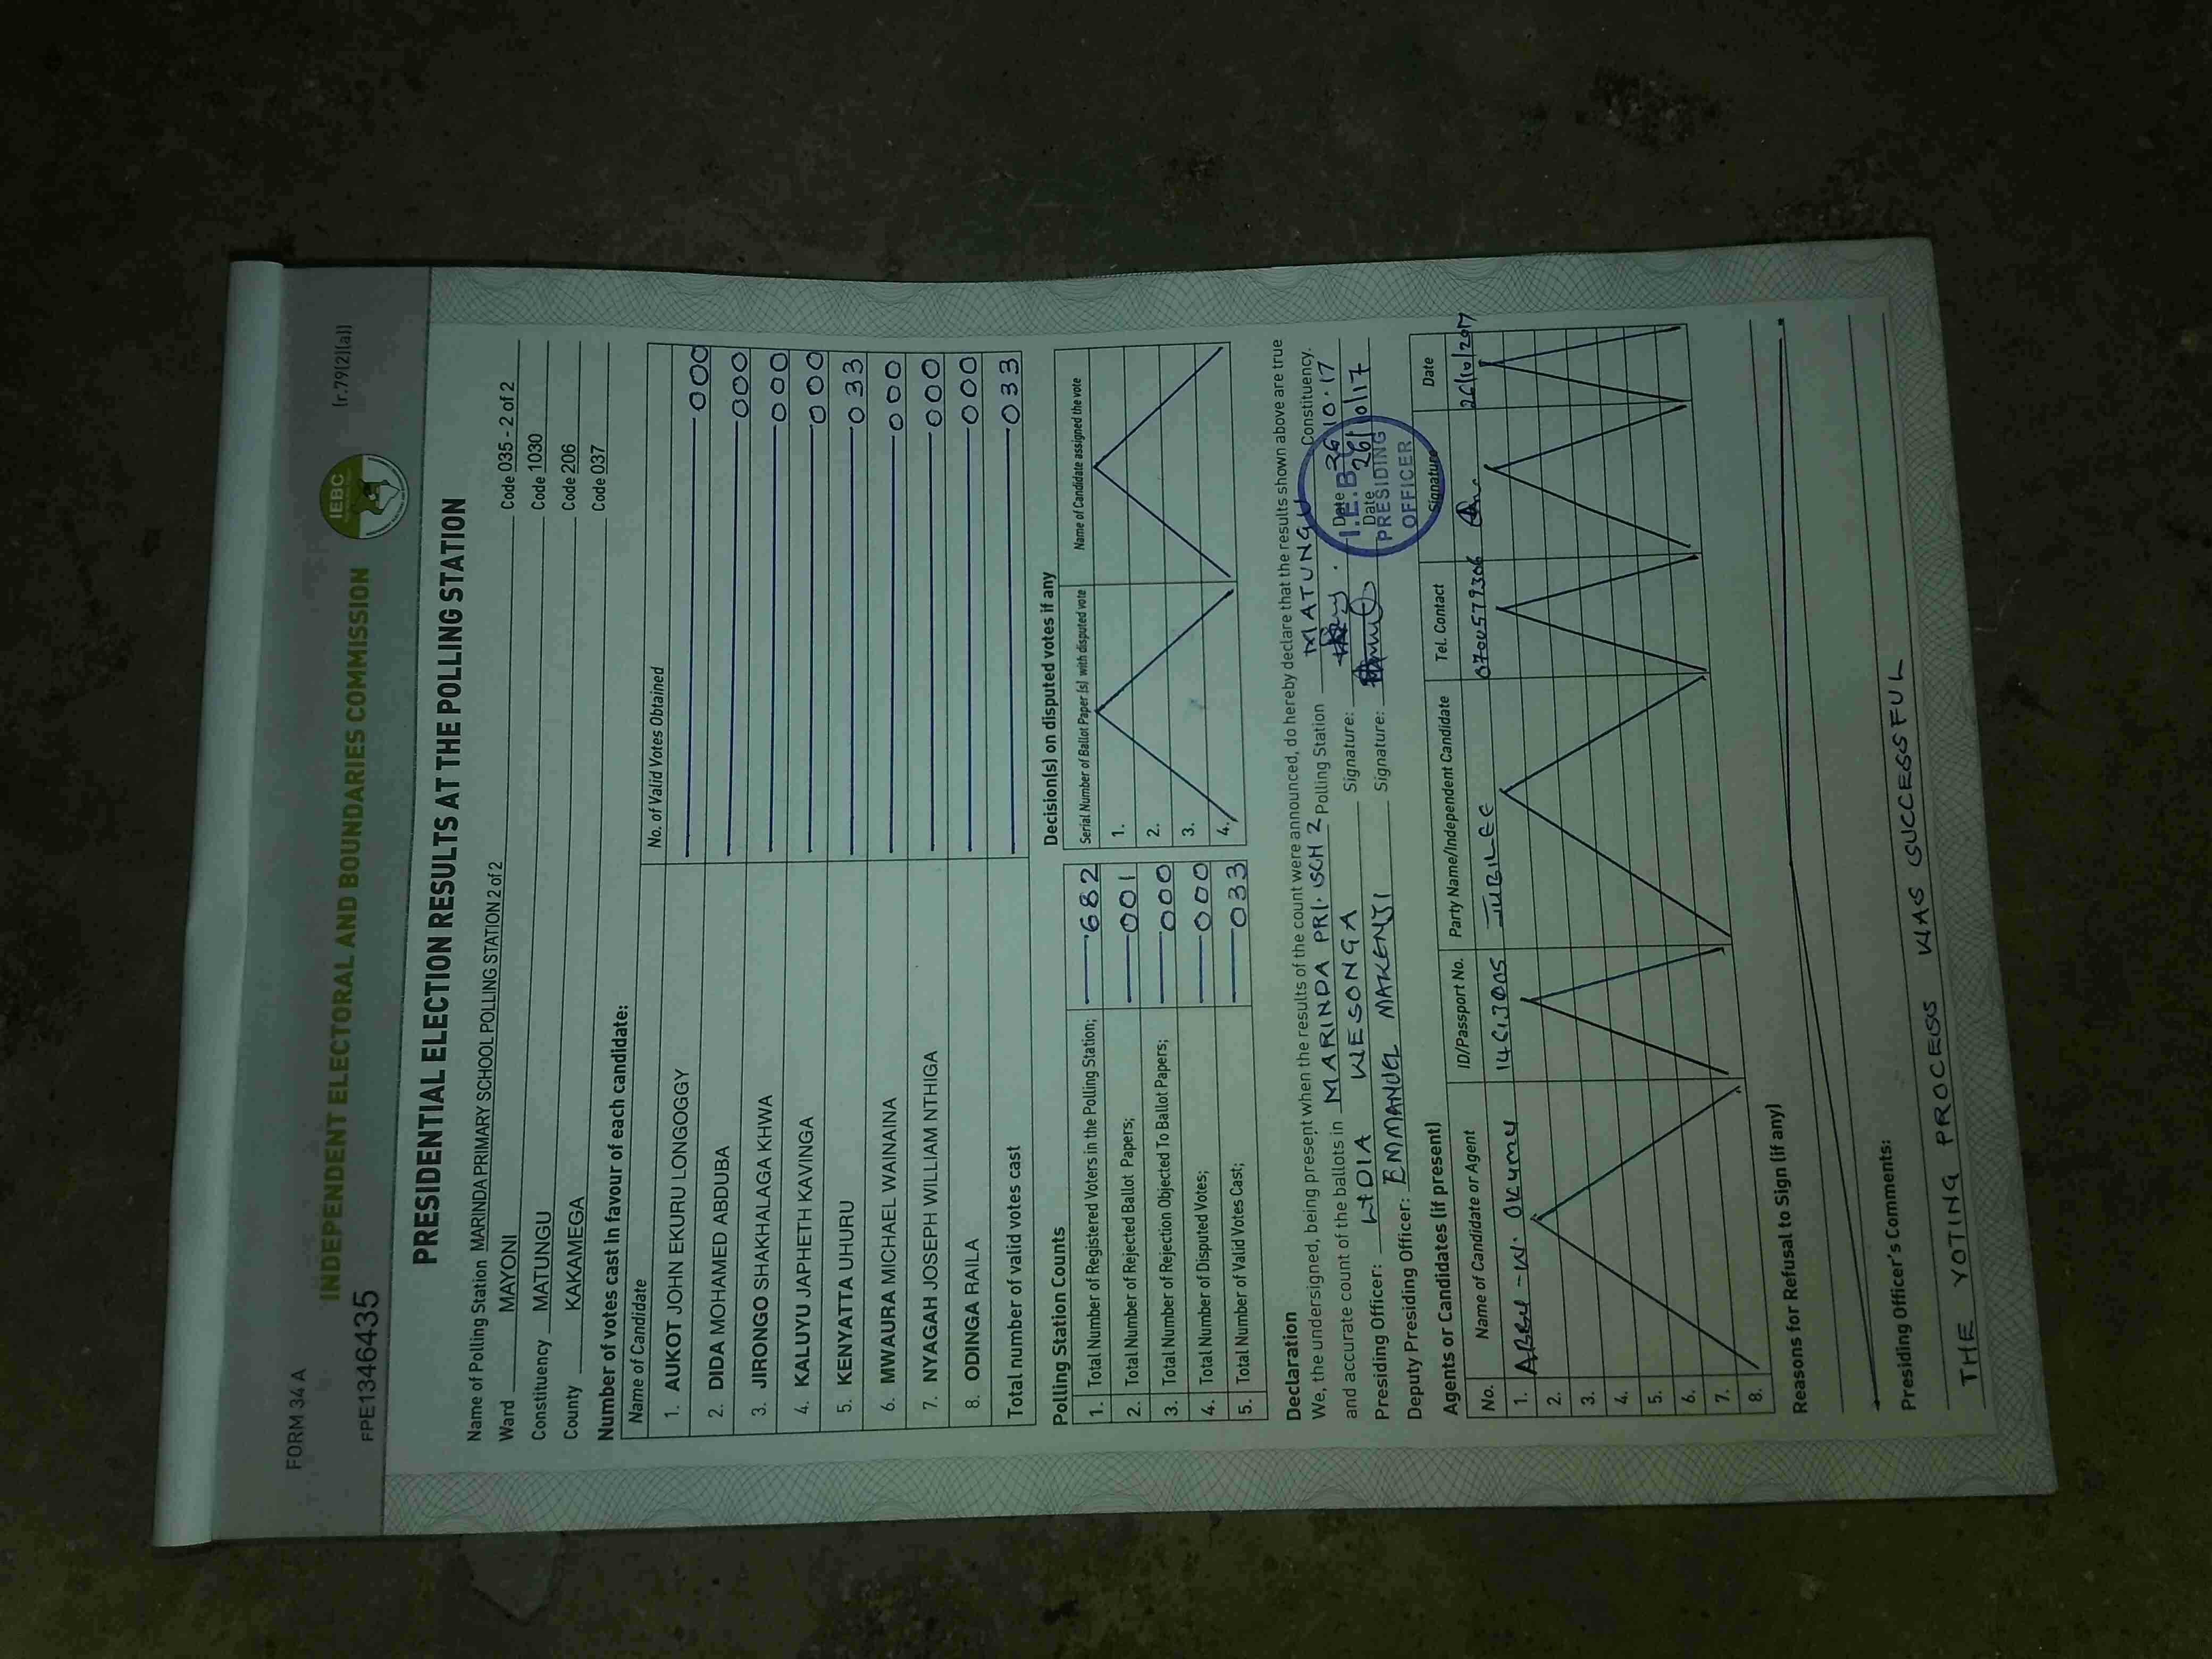 FORM 34 A
(r.79(2)(a))
INDEPENDENT ELECTORAL AND BOUNDARIES COMMISSION
IEBC
FPE1346435
PRESIDENTIAL ELECTION RESULTS AT THE POLLING STATION
Name of Polling Station MARINDA PRIMARY SCHOOL POLLING STATION 2 of 2 Code 035 - 2 of 2
Ward MAYONI Code 1030
Constituency MATUNGU Code 206
County KAKAMEGA Code 037
Number of votes cast in favour of each candidate:
Name of Candidate No. of Valid Votes Obtained
1. AUKOT JOHN EKURU LONGOGGY 000
2. DIDA MOHAMED ABDUBA 000
3. JIRONGO SHAKHALAGA KHWA 000
4. KALUYU JAPHETH KAVINGA 000
5. KENYATTA UHURU 033
6. MWAURA MICHAEL WAINAINA 000
7. NYAGAH JOSEPH WILLIAM NTHIGA 000
8. ODINGA RAILA 000
Total number of valid votes cast 033
Polling Station Counts
1. Total Number of Registered Voters in the Polling Station; 682
2. Total Number of Rejected Ballot Papers; 001
3. Total Number of Rejection Objected To Ballot Papers; 000
4. Total Number of Disputed Votes; 000
5. Total Number of Valid Votes Cast; 033
Decision(s) on disputed votes if any
Serial Number of Ballot Paper (s) with disputed vote Name of Candidate assigned the vote
1.
2.
3.
4.
Declaration
We, the undersigned, being present when the results of the count were announced, do hereby declare that the results shown above are true
and accurate count of the ballots in MARINDA PRI. SCH 2 Polling Station MATUNGU Constituency.
Presiding Officer: LYDIA WESONGA Signature: Date 26.10.17
Deputy Presiding Officer: EMMANUEL MAKENJI Signature: Date 26/10/17
I.E.B.C
PRESIDING
OFFICER
Agents or Candidates (if present)
No. Name of Candidate or Agent ID/Passport No. Party Name/Independent Candidate Tel. Contact Signature Date
1. JUBILEE 0700579306 26/10/2017
2.
3.
4.
5.
6.
7.
8.
Reasons for Refusal to Sign (if any)
Presiding Officer's Comments:
THE VOTING PROCESS WAS SUCCESSFUL